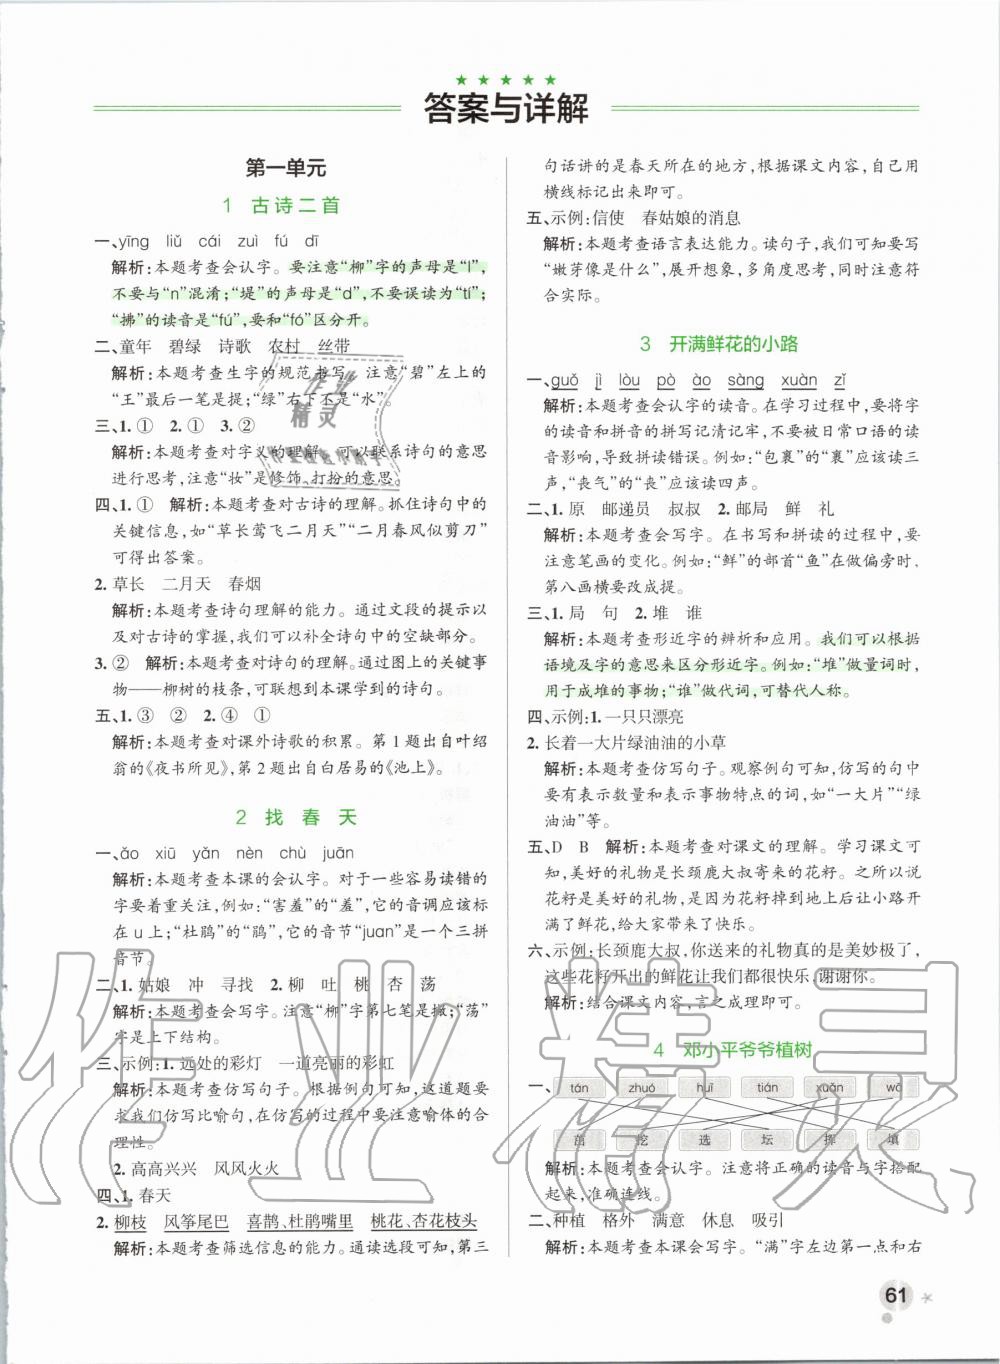 答案与详解
第一单元
1 古诗二首
一、yīng liǔ cái zuì fú dī
解析:本题考查会认字。要注意“柳”字的声母是“l”,
不要与“n”混淆;“堤”的声母是“d”,不要误读为“tí”;
“拂”的读音是“fú”,要和“fó”区分开。
二、童年 碧绿 诗歌 农村 丝带
解析:本题考查生字的规范书写。注意“碧”左上的
“王”最后一笔是提;“绿”右下不是“水”。
三、1. ① 2. ① 3. ②
解析:本题考查对字义的理解。可以联系诗句的意思
进行思考,注意“妆”是修饰、打扮的意思。
四、1. ① 解析:本题考查对古诗的理解。抓住诗句中的
关键信息,如“草长莺飞二月天”“二月春风似剪刀”
可得出答案。
2. 草长 二月天 春烟
解析:本题考查诗句理解的能力。通过文段的提示以
及对古诗的掌握,我们可以补全诗句中的空缺部分。
3. ② 解析:本题考查对诗句的理解。通过图上的关键事
物——柳树的枝条,可联想到本课学到的诗句。
五、1. ③ ② 2. ④ ①
解析:本题考查对课外诗歌的积累。第1题出自叶绍
翁的《夜书所见》,第2题出自白居易的《池上》。
2 找春天
一、ǎo xiū yǎn nèn chù juān
解析:本题考查本课的会认字。对于一些容易读错的
字要着重关注,例如:“害羞”的“羞”,它的音调应该标
在u上;“杜鹃”的“鹃”,它的音节“juan”是一个三拼
音节。
二、1. 姑娘 冲 寻找 2. 柳 吐 桃 杏 荡
解析:本题考查会写字。注意“柳”字第七笔是撇;“荡”
字是上下结构。
三、示例:1. 远处的彩灯 一道亮丽的彩虹
解析:本题考查仿写句子。根据例句可知,这道题要
求我们仿写比喻句,在仿写的过程中要注意喻体的合
理性。
2. 高高兴兴 风风火火
四、1. 春天
2. 柳枝 风筝尾巴 喜鹊、杜鹃嘴里 桃花、杏花枝头
解析:本题考查筛选信息的能力。通读选段可知,第三
句话讲的是春天所在的地方,根据课文内容,自己用
横线标记出来即可。
五、示例:信使 春姑娘的消息
解析:本题考查语言表达能力。读句子,我们可知要写
“嫩芽像是什么”,展开想象,多角度思考,同时注意符
合实际。
3 开满鲜花的小路
一、guǒ jì lòu pò ào sàng xuàn zǐ
解析:本题考查会认字的读音。在学习过程中,要将字
的读音和拼音的拼写记清记牢,不要被日常口语的读
音影响,导致拼读错误。例如:“包裹”的“裹”应该读三
声,“丧气”的“丧”应该读四声。
二、1. 原 邮递员 叔叔 2. 邮局 鲜 礼
解析:本题考查会写字。在书写和拼读的过程中,要
注意笔画的变化。例如:“鲜”的部首“鱼”在做偏旁时,
第八画横要改成提。
三、1. 局 句 2. 堆 谁
解析:本题考查形近字的辨析和应用。我们可以根据
语境及字的意思来区分形近字。例如:“堆”做量词时,
用于成堆的事物;“谁”做代词,可替代人称。
四、示例:1. 一只只漂亮
2. 长着一大片绿油油的小草
解析:本题考查仿写句子。观察例句可知,仿写的句中
要有表示数量和表示事物特点的词,如“一大片”“绿
油油”等。
五、D B 解析:本题考查对课文的理解。学习课文可
知,美好的礼物是长颈鹿大叔寄来的花籽。之所以说
花籽是美好的礼物,是因为花籽掉到地上后让小路开
满了鲜花,给大家带来了快乐。
六、示例:长颈鹿大叔,你送来的礼物真的是美妙极了,
这些花籽开出的鲜花让我们都很快乐,谢谢你。
解析:结合课文内容,言之成理即可。
4 邓小平爷爷植树
一、tán zhuó huī tián xuǎn wā
茁 挖 选 坛 挥 填
解析:本题考查会认字。注意将正确的读音与字搭配
起来,准确连线。
二、种植 格外 满意 休息 吸引
解析:本题考查本课会写字。“满”字左边第一点和右
61
作业精灵
作业精灵